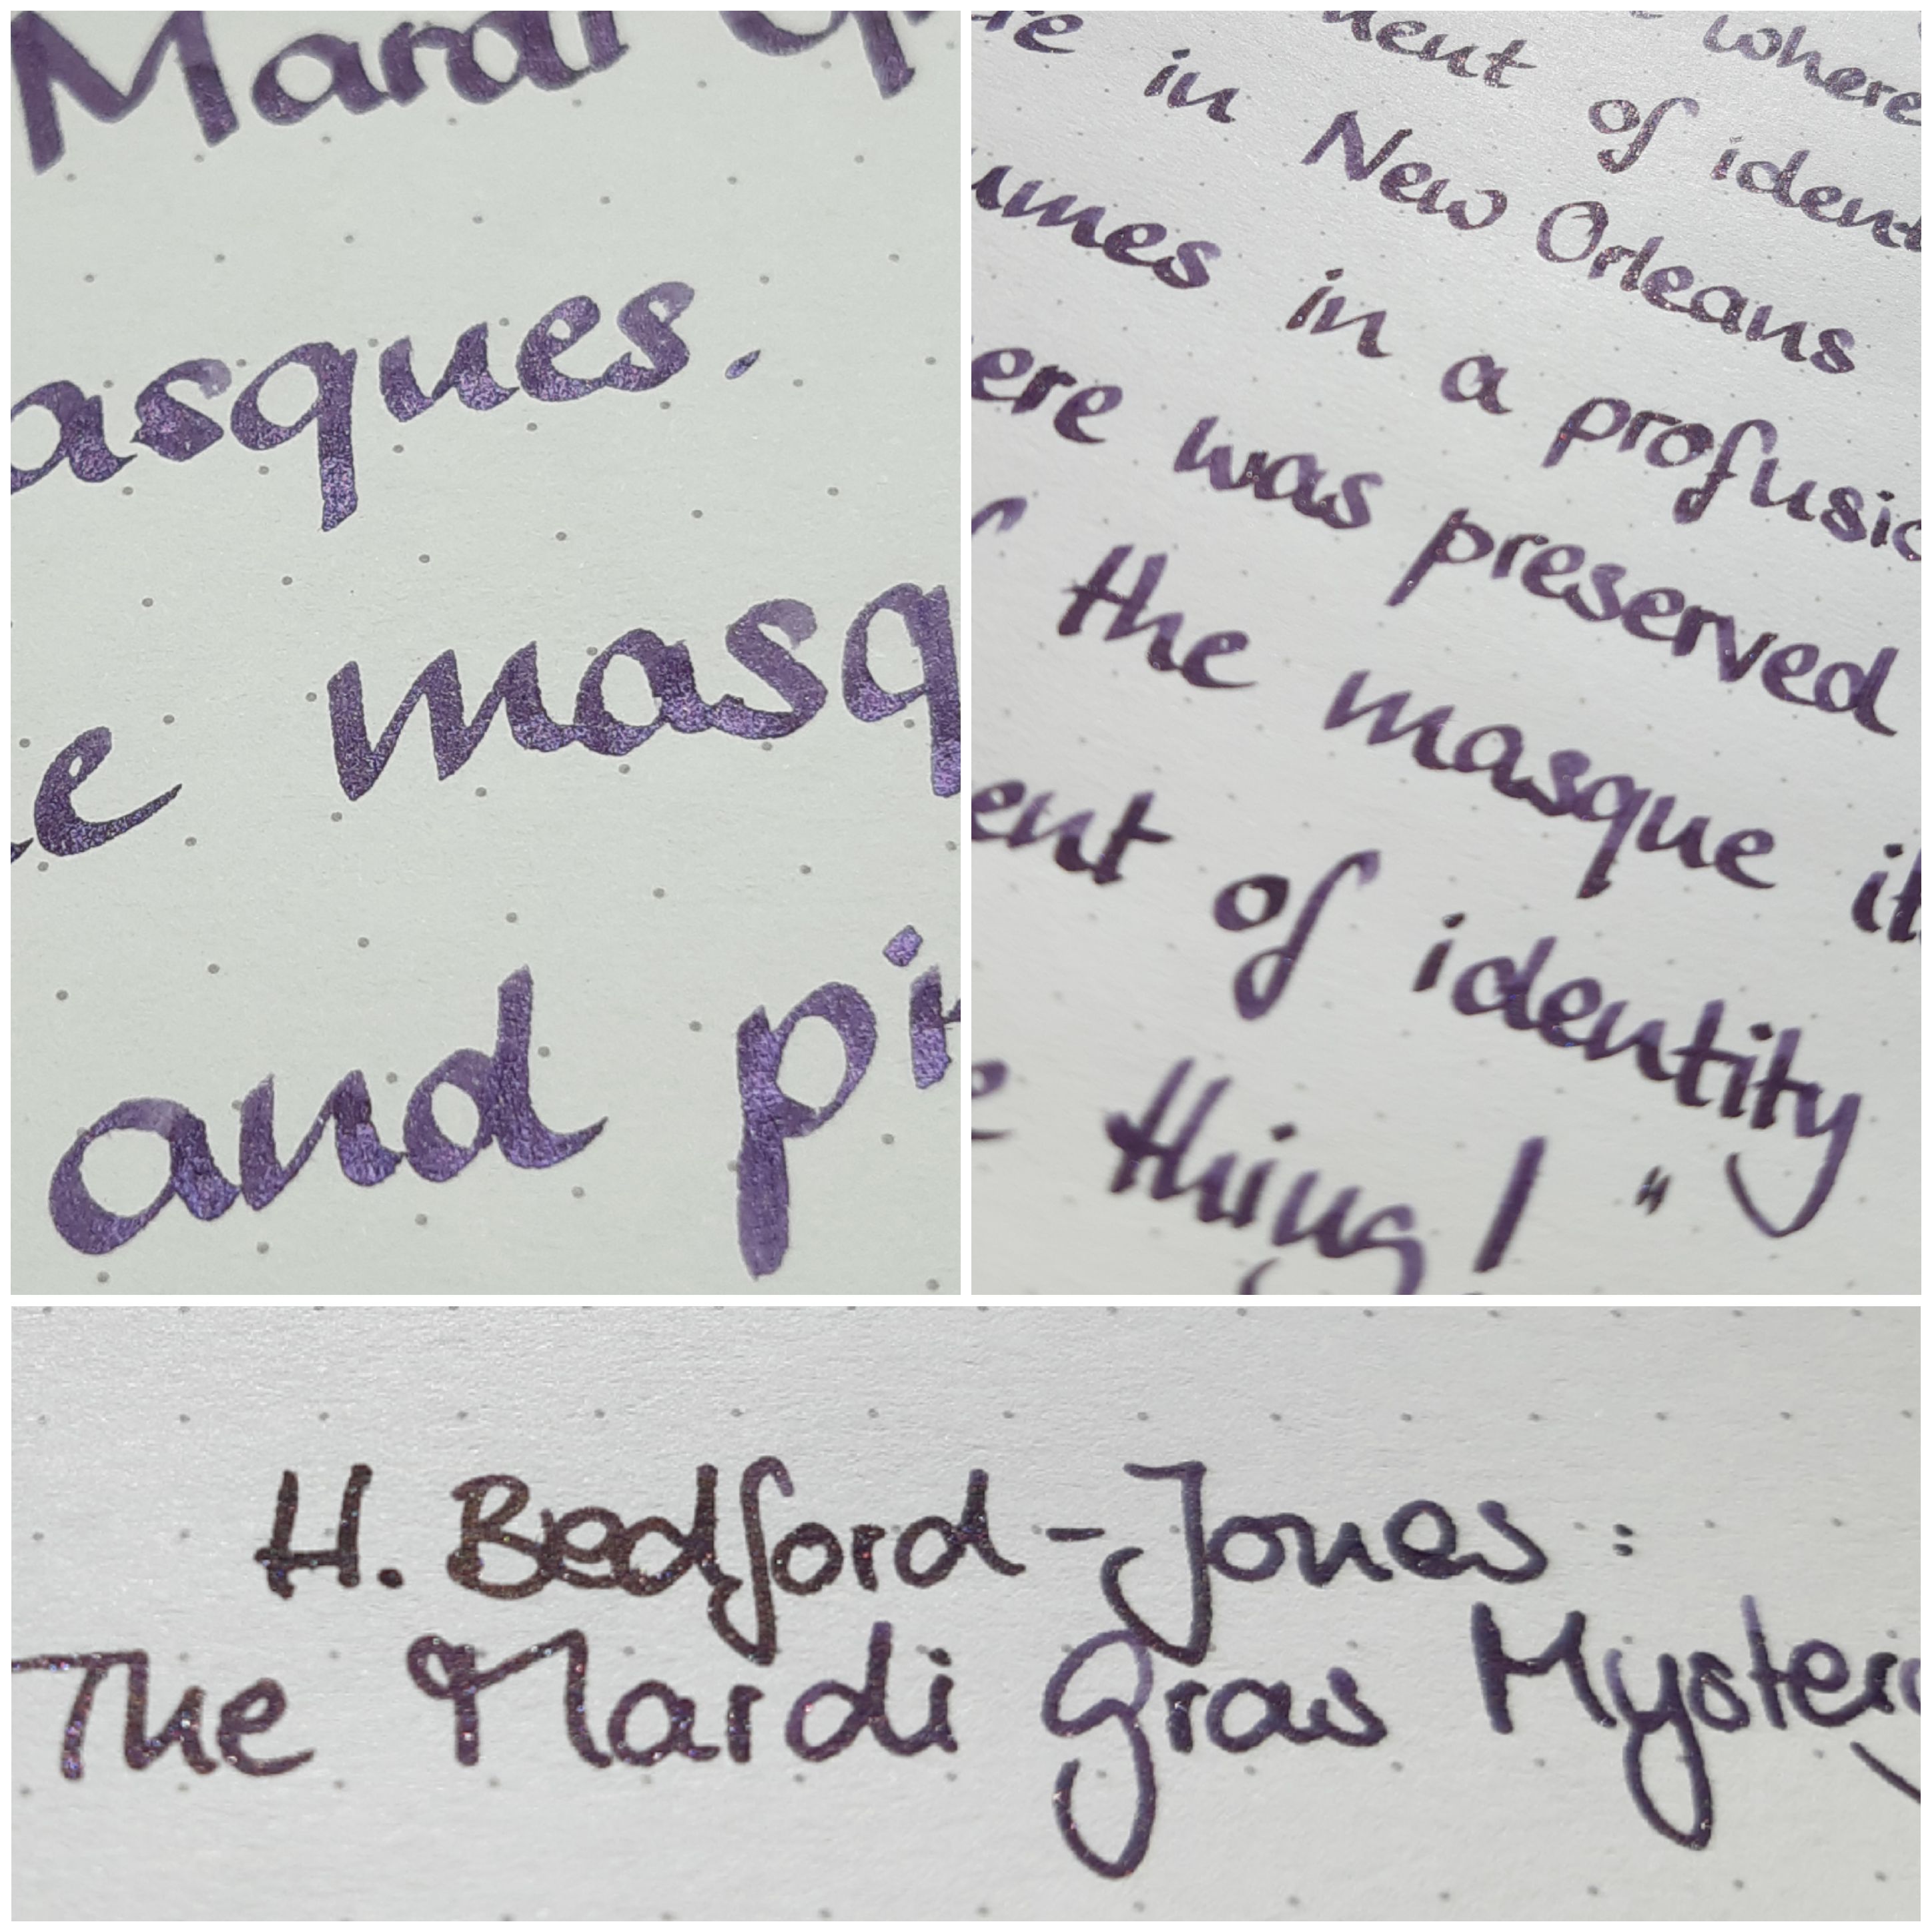 Mardi Gr
asques.
e masq
and pi
where
ment of ident
re in New Orleans
umes in a profusio
ere was preserved
f the masque it
ent of identity
e thing!"
H. Bedford-Jones:
The Mardi Gras Mystery